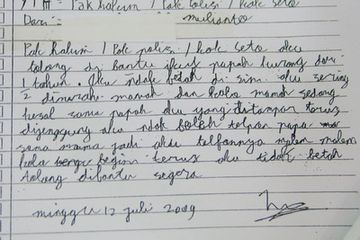 Pak hakim / Pak polisi / kak seto
Dari : mulianto
Pak hakim / Pak polisi / kak seto aku
tolong di bantu ikut papah kurang dari
1 tahun. Aku ndak betah di sini aku sering
2 dimarah mamah dan kalo mamah sedang
kesal sama papah aku yang ditampar terus
dijenggung aku ndak boleh telpon papa
sama mama jadi aku telfonnya malem malem
kalo begini terus aku tidak betah
tolong dibantu segera
minggu 12 juli 2009